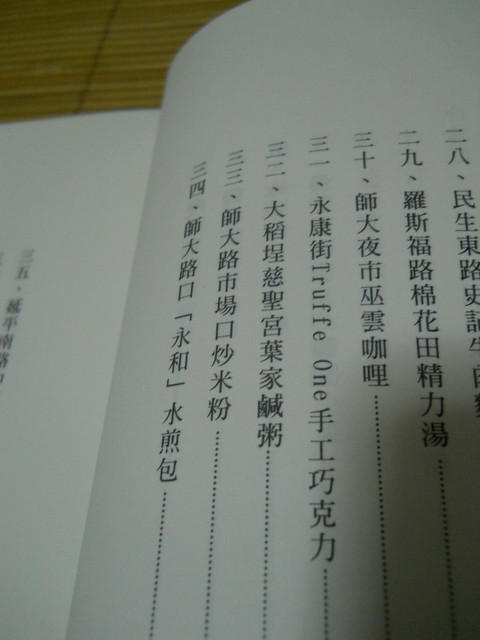 二八、民生東路史記牛肉麵
二九、羅斯福路棉花田精力湯
三十、師大夜市巫雲咖哩
三一、永康街Truffe One手工巧克力
三二、大稻埕慈聖宮葉家鹹粥
三三、師大路市場口炒米粉
三四、師大路口「永和」水煎包
三五、延平南路